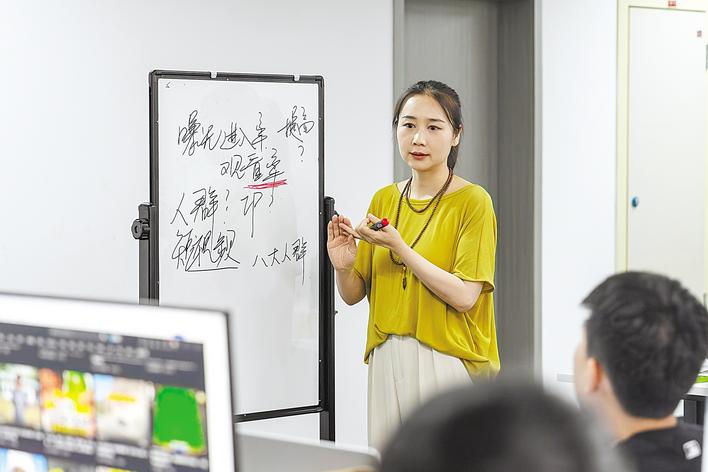 曝光/进入率 提高?
观看率
人群?
短视频 八大人群